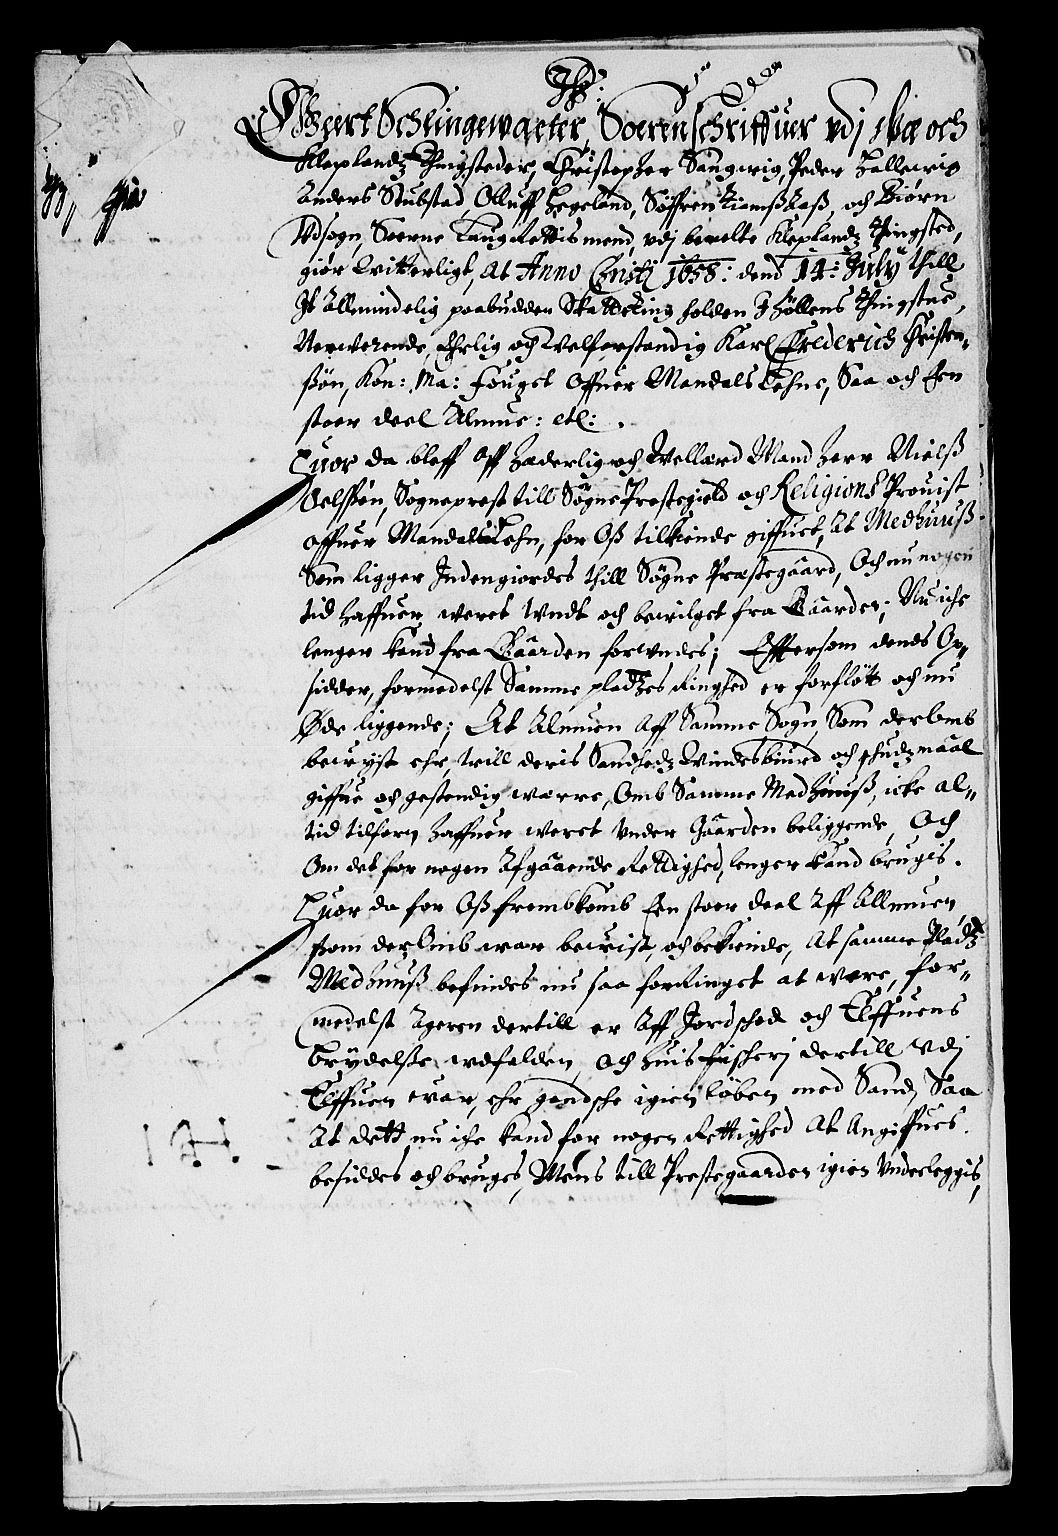 Gert Schlingewaeter, Soerenschriffuer vdj Øsse och
Kleplandtz Thingsteder, Christopher Sangvig, Peder Hallevig
Anders Stubstad, Olluff Hegeland, Søffren och Biørn
Vdsogn, Soerne Laugrettis mend, vdj bemelte Kleplandtz Thingsted,
giør Witterligt, At Anno Christi 1658: dend 14: July thill
It Allmindelig paabudden Skatteting holden J Höllens Thingstue,
Nerwerende, Ehrlig och Welforstandig Karl Frederich Christen-
ßön, Kon: Ma: Fouget Offuer Mandals Lehne, Saa och Een
stoer deel Almue: etc: .
Huor da bleff Aff Hæderlig och Wellærd Mand Herr Nielß
Oelßøn, Sogneprest till Søgne Prestegield och Religions Prouist
offuer Mandals Lehn, for Oß tilkiende giffuet, At Medhuuß
Som ligger Indengierdes thill Søgne Præstegaard, Och nu nogen
tid haffuer weret Undt och bewilget fra Gaarden; Nu iche
lenger kand fra Gaarden forvndes; Effterssom dends Op-
sidder, formedelst Samme pladtzes Ringhed er forfløtt och nu
Øde liggende; At Almuen Aff Samme Sogn, Som der Omb
bewyst ehr, will deris Sandhedz Windesbiurd och skudzmaal
giffue och gestendig werre, Omb Samme Medhuuß, icke al-
tid tilforn haffuer weret Vnder Gaarden beliggende, Och
Om det for nogen Afgaaende Rettighed, lenger kand brugis.
Huor da for Oß frembkomb Een stoer deel Aff Allmuen
ßom der Omb war bewist, och bekiende, At samme Pladtz
Medhuuß befindes nu saa forringet at were, for-
medelst Ageren dertill er Aff Jordschred och Elffuens
Brydelße wdfalden, och huis fischerj dertill vdj
Elffuen war, ehr gandsche igien løben med Sand, Saa
At dett nu iche kand for nogen Rettighed At Angiffues.
besiddes och bruges, Mens till Prestegaarden igien Vnderleggis,